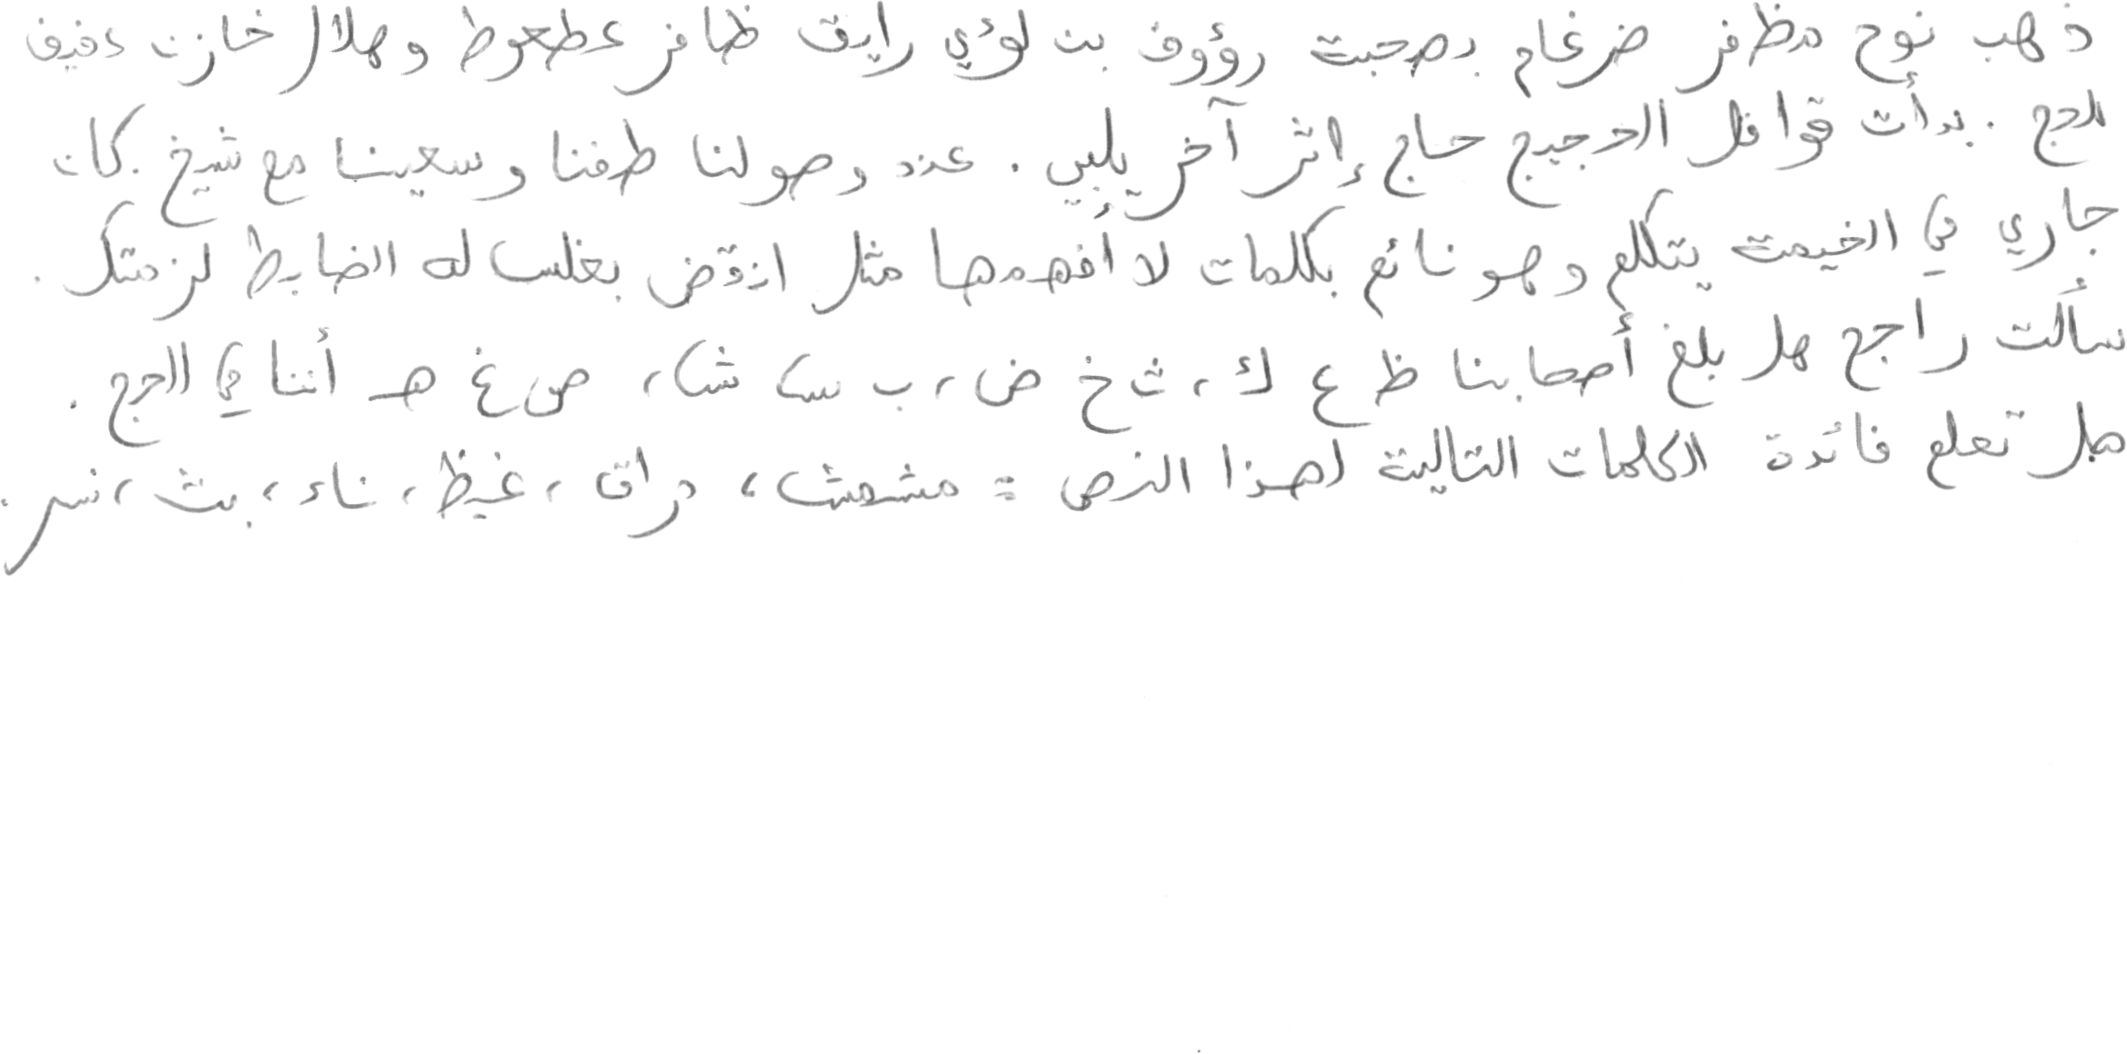 ذهب نوح مظفر ضرغام بصحبت رؤوف بن لؤي رايق ظافر عطعوط وهلال خازن عفيف
للحج . بدأت قوافل الحجيج حاج إثر آخر يلبي . عند وصولنا طفنا وسعينا مع شيخ . كان
جاري في الخيمة يتكلم وهو نائم بكلمات لا أفهمها مثل انقض بغلس له الضابط لزمتك .
سألت راجح هل بلغ أصحابنا ظ ع ك ، ث خ ض ، ب س ش ، ص غ هـ أننا في الحج .
هل تعلم فائدة الكلمات التالية لهذا النص : مشمش ، براق ، غيظ ، ناء ، بث ، نسر .